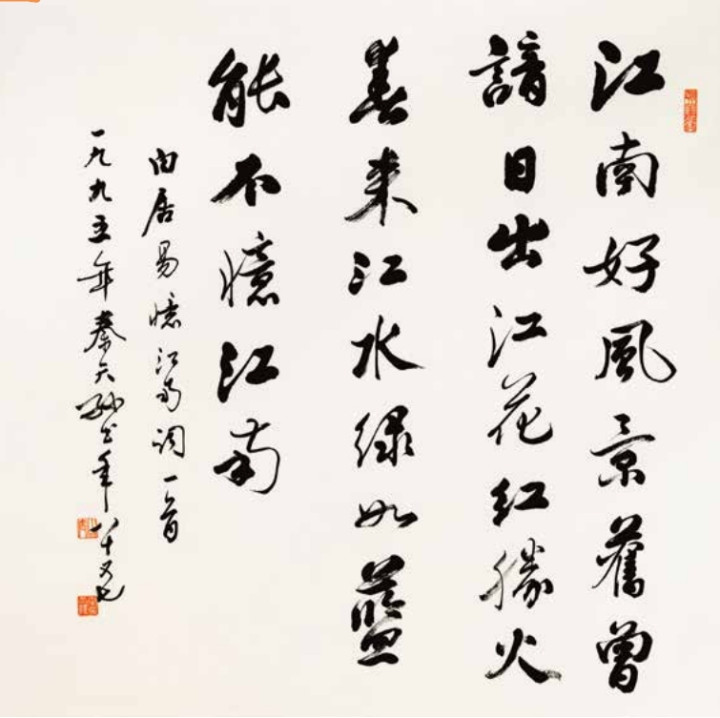 江南好風景舊曾
諳日出江花紅勝火
春來江水綠如藍
能不憶江南
白居易憶江南詞一首
一九九五年秦天孫書年八十